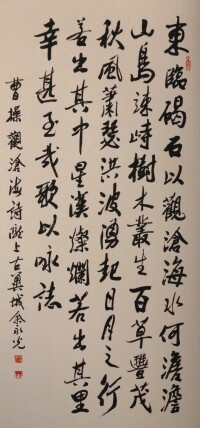 東臨碣石以觀滄海水何澹澹
山島竦峙樹木叢生百草豐茂
秋風蕭瑟洪波湧起日月之行
若出其中星漢燦爛若出其里
幸甚至哉歌以咏誌
曹操觀滄海詩上古冀城余永光